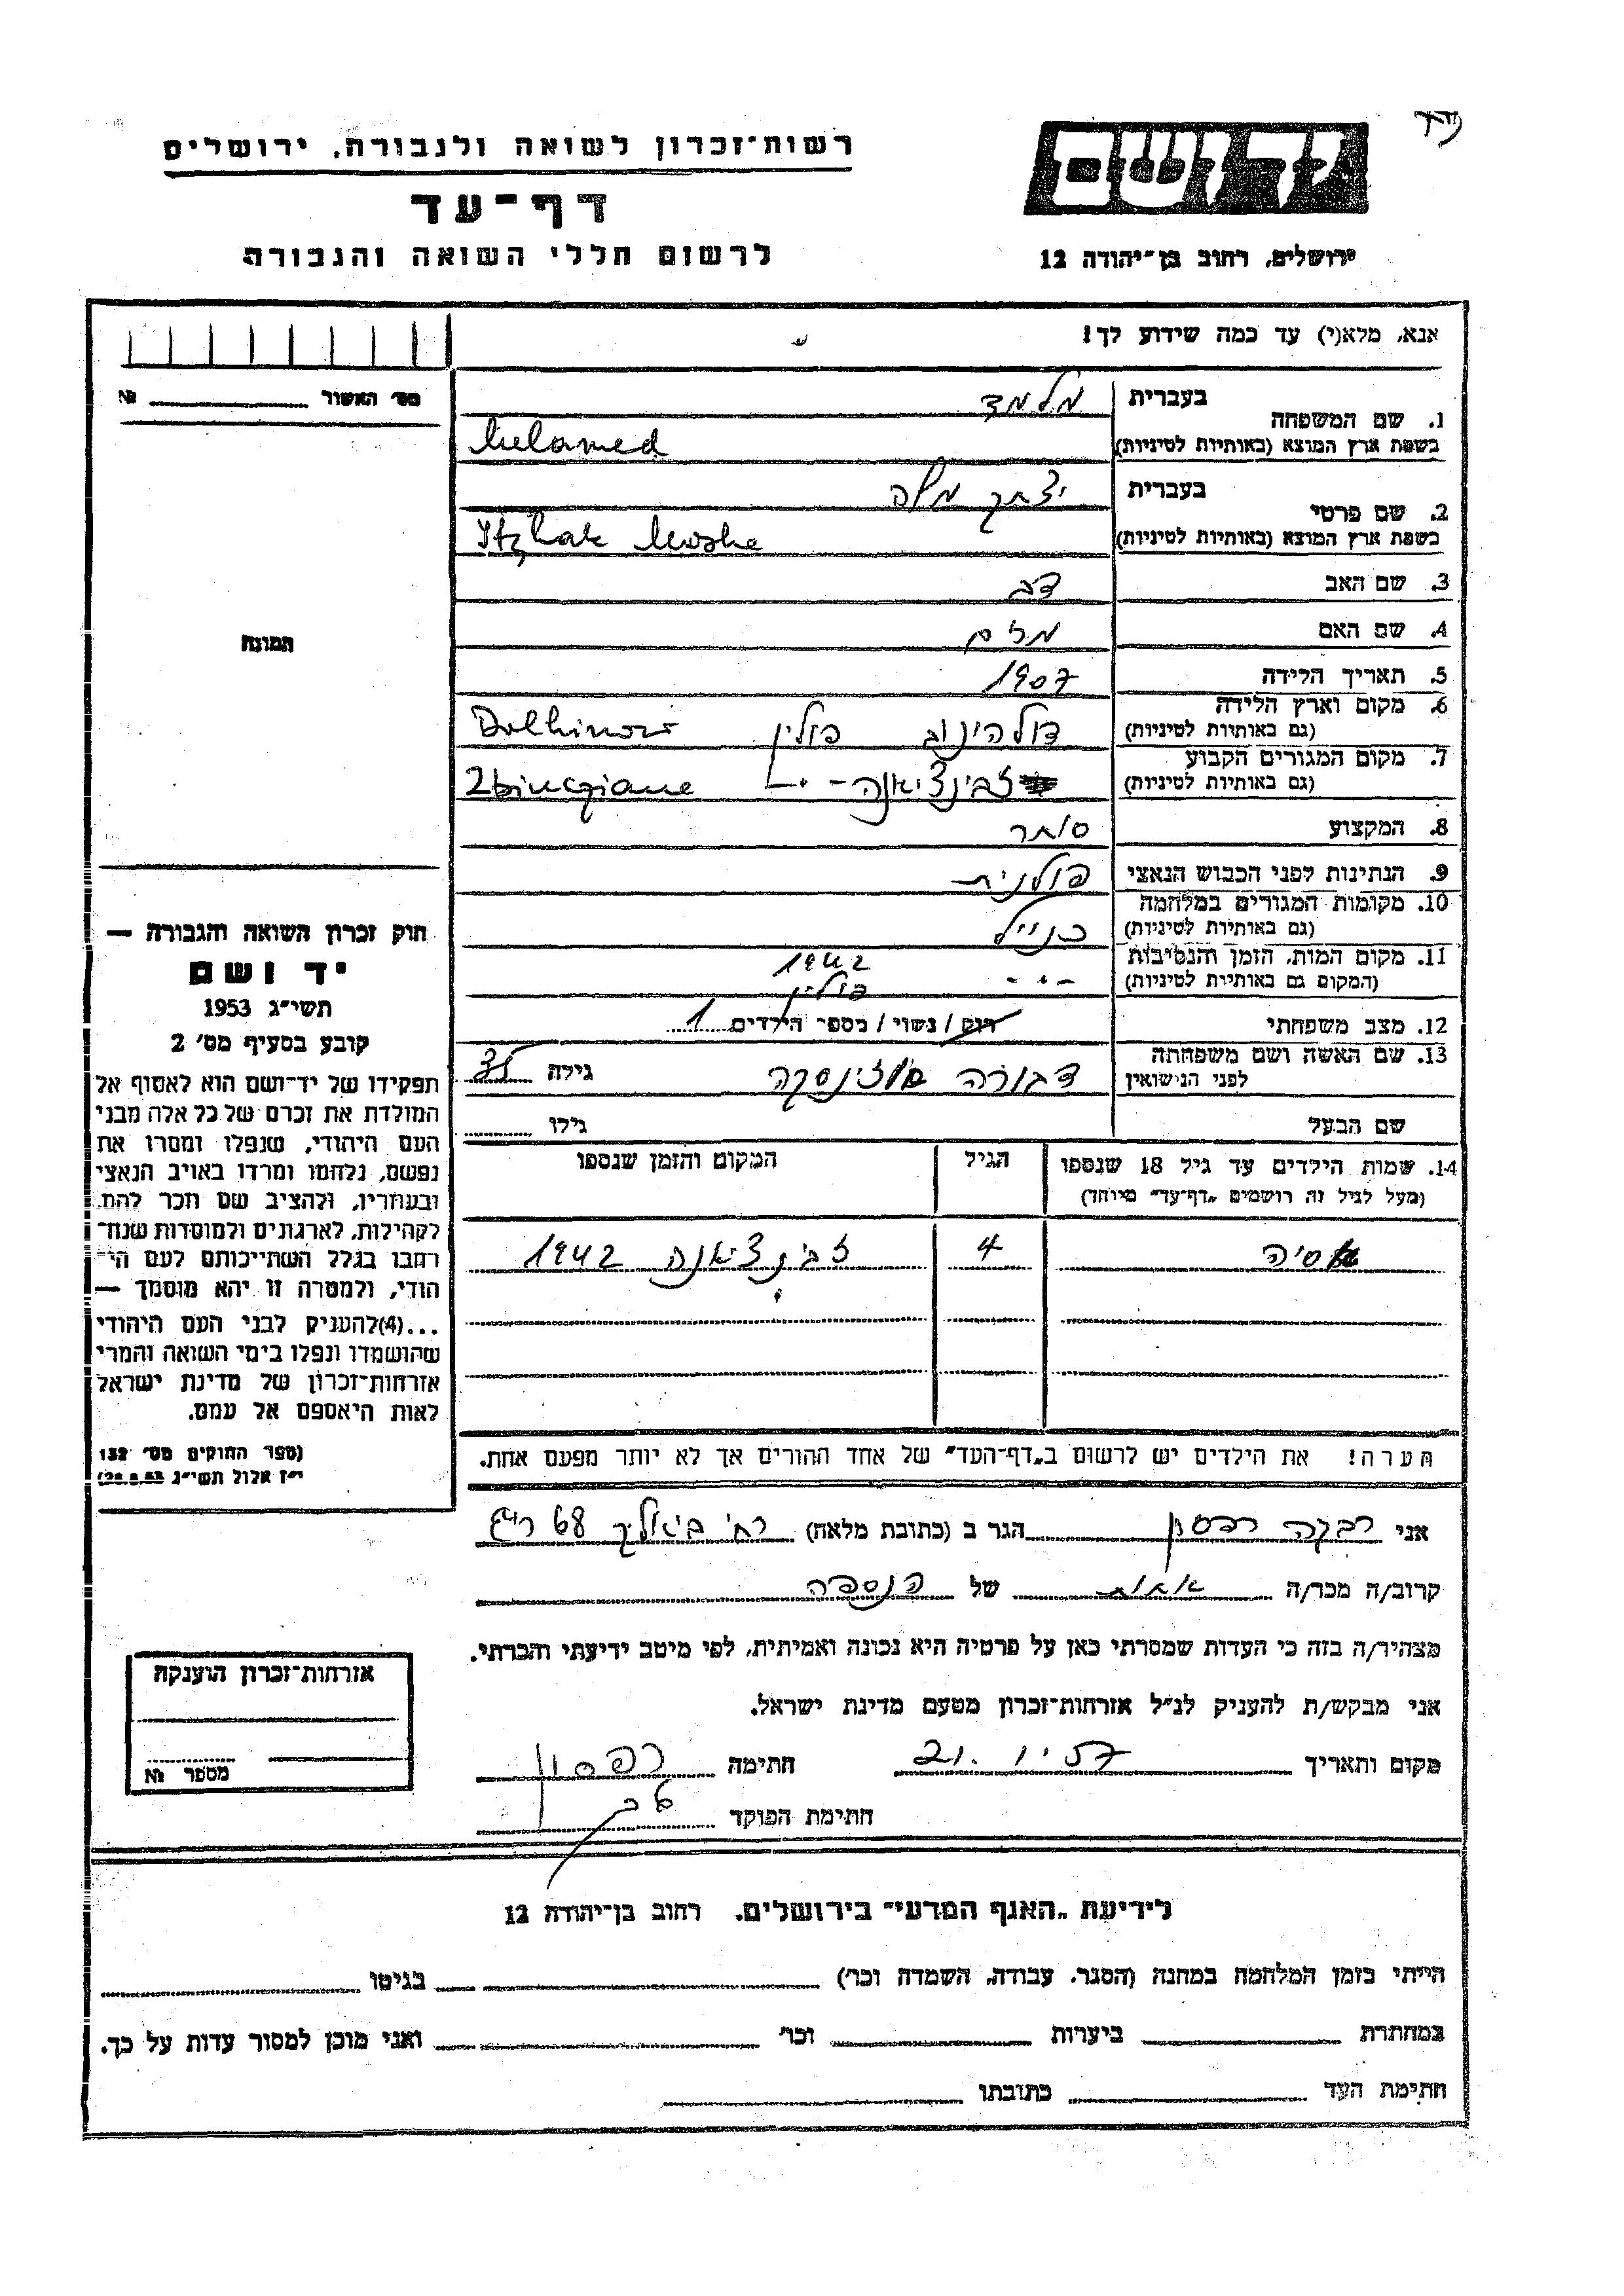 רשות־זכרון לשואה ולגבורה, ירושלים
דף־עד
לרשום חללי השואה והגבורה
ידושם
ירושלים, רחוב בן־יהודה 12
אנא, מלא(י) עד כמה שידוע לך!
מס׳ האשור № ________
תמונה
1. שם המשפחה
בעברית מלמד
בשפת ארץ המוצא (באותיות לטיניות) Melamed
2. שם פרטי
בעברית יצחק משה
בשפת ארץ המוצא (באותיות לטיניות) Itzhak Moshe
3. שם האב דב
4. שם האם מרים
5. תאריך הלידה 1907
6. מקום וארץ הלידה
(גם באותיות לטיניות) דולהינוב פולין Dolhinow
7. מקום המגורים הקבוע
(גם באותיות לטיניות) זבינציאנה -"- Zbinciane
8. המקצוע סוחר
9. הנתינות לפני הכבוש הנאצי פולנית
10. מקומות המגורים במלחמה
(גם באותיות לטיניות) כנ״ל
11. מקום המות, הזמן והנסיבות
(המקום גם באותיות לטיניות) -"- 1942 פולין
12. מצב משפחתי רוק / נשוי / מספר הילדים 1
13. שם האשה ושם משפחתה
לפני הנישואין דבורה גילה
שם הבעל גילו
14. שמות הילדים עד גיל 18 שנספו
(מעל לגיל זה רושמים „דף־עד״ מיוחד)
הגיל
המקום והזמן שנספו
אסיה 4 זבינציאנה 1942
הערה! את הילדים יש לרשום ב„דף־העד״ של אחד ההורים אך לא יותר מפעם אחת.
חוק זכרון השואה והגבורה —
יד ושם
תשי״ג 1953
קובע בסעיף מס׳ 2
תפקידו של יד־ושם הוא לאסוף אל
המולדת את זכרם של כל אלה מבני
העם היהודי, שנפלו ומסרו את
נפשם, נלחמו ומרדו באויב הנאצי
ובעוזריו, ולהציב שם וזכר להם,
לקהילות, לארגונים ולמוסדות שנח־
רבו בגלל השתייכותם לעם הי־
הודי, ולמטרה זו יהא מוסמך —
...(4)להעניק לבני העם היהודי
שהושמדו ונפלו בימי השואה והמרי
אזרחות־זכרון של מדינת ישראל
לאות היאספם אל עמם.
(ספר החוקים מס׳ 132
י״ז אלול תשי״ג 28.8.53)
אני רבקה רפסון הגר ב (כתובת מלאה) רח׳ ביאליק 68 ר״ג
קרוב/ה מכר/ה אחות של הנספה
מצהיר/ה בזה כי העדות שמסרתי כאן על פרטיה היא נכונה ואמיתית, לפי מיטב ידיעתי והכרתי.
אני מבקש/ת להעניק לנ״ל אזרחות־זכרון מטעם מדינת ישראל.
מקום ותאריך 21.1.57 חתימה רפסון
חתימת הפוקד
אזרחות־זכרון הוענקה
מספר №
לידיעת „האגף המדעי״ בירושלים. רחוב בן־יהודה 12
הייתי בזמן המלחמה במחנה (הסגר, עבודה, השמדה וכר׳) בגיטו
במחתרת ביערות וכר׳ ואני מוכן למסור עדות על כך.
חתימת העד כתובתו